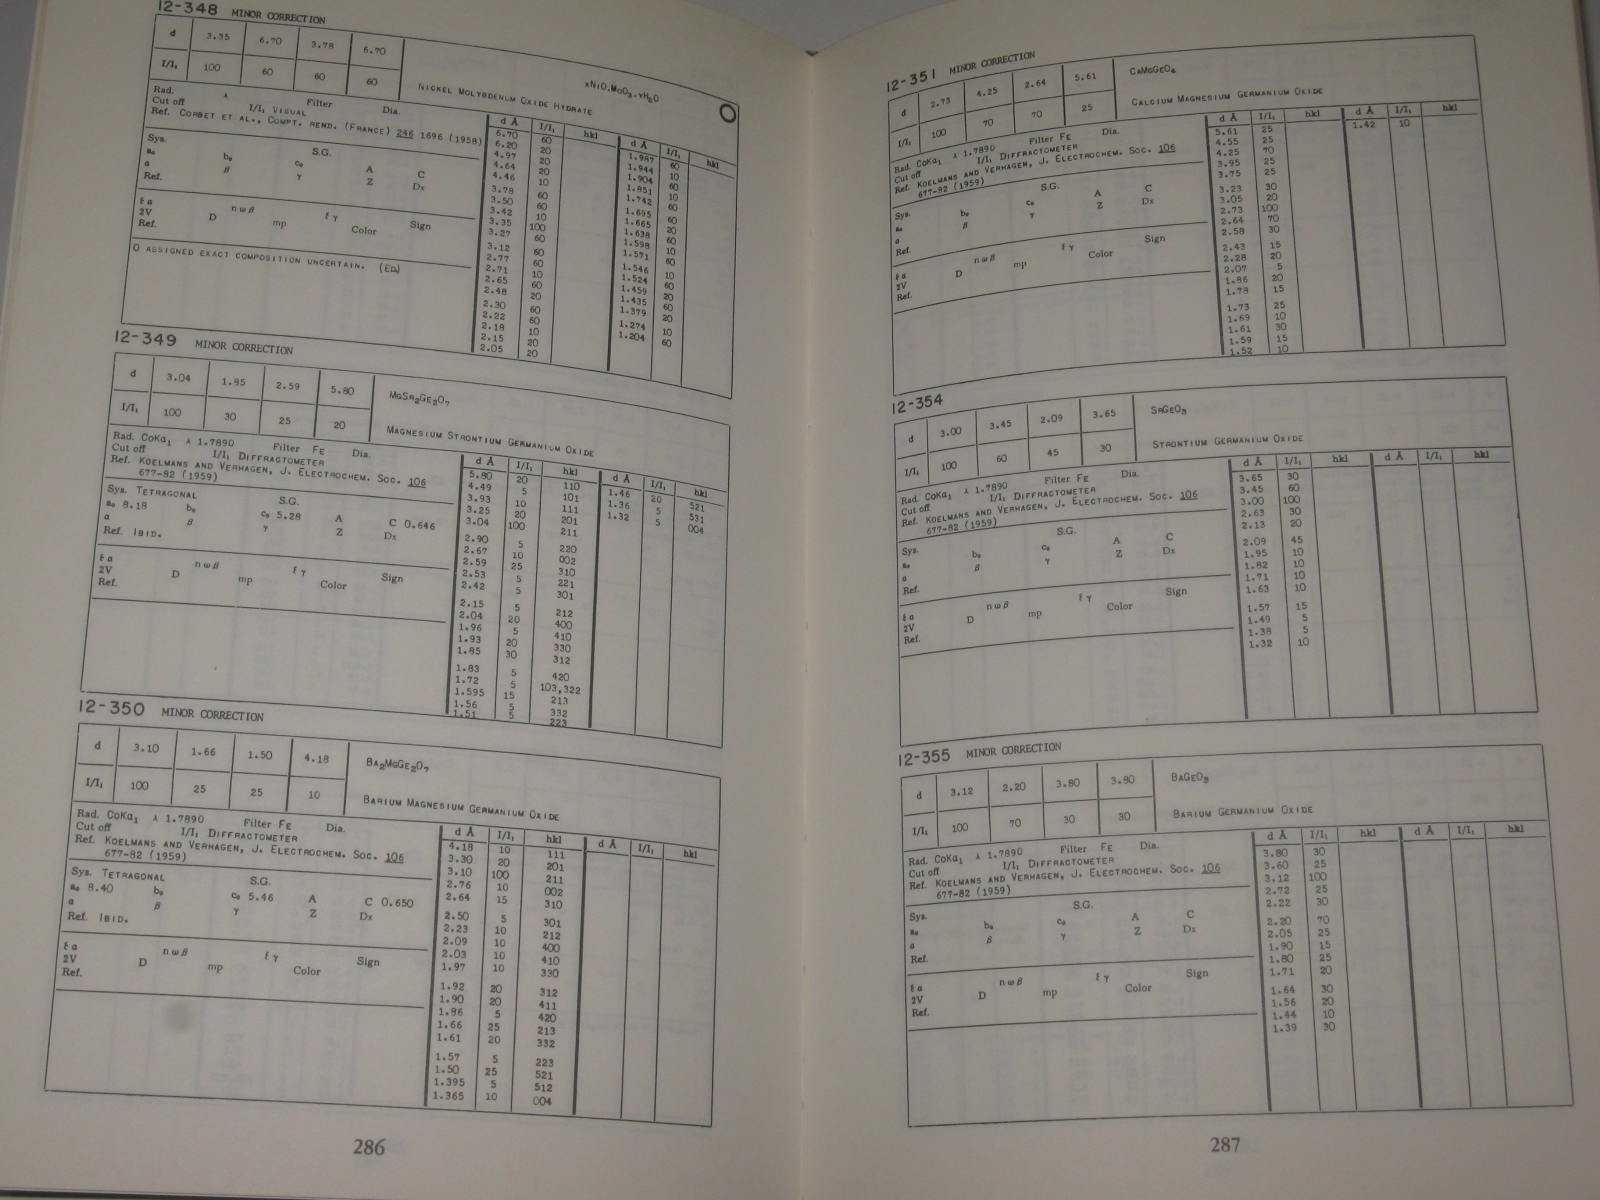 12-348 MINOR CORRECTION
d 3.35 6.70 3.78 6.70
I/I₁ 100 60 60 60
xNiO.MoO₃.yH₂O
NICKEL MOLYBDENUM OXIDE HYDRATE
Rad. λ Filter Dia.
Cut off I/I₁ VISUAL
Ref. CORBET ET AL., COMPT. REND. (FRANCE) 246 1696 (1958)
Sys. S.G.
a₀ b₀ c₀ A C
α β γ Z Dx
Ref.
ε α n ω β ε γ Sign
2V D mp Color
Ref.
O ASSIGNED EXACT COMPOSITION UNCERTAIN. (ED)
d Å I/I₁ hkl d Å I/I₁ hkl
6.70 60 1.987 60
6.20 20 1.944 10
4.97 20 1.904 60
4.64 20 1.851 10
4.46 10 1.742 60
3.78 60 1.695 60
3.50 60 1.665 20
3.42 10 1.638 60
3.35 100 1.598 10
3.27 60 1.571 60
3.12 60 1.546 10
2.77 60 1.524 60
2.71 10 1.459 20
2.65 60 1.435 60
2.48 20 1.379 20
2.30 60 1.274 10
2.22 60 1.204 60
2.18 10
2.15 20
2.05 20
12-349 MINOR CORRECTION
d 3.04 1.85 2.59 5.80
I/I₁ 100 30 25 20
MgSr₂Ge₂O₇
MAGNESIUM STRONTIUM GERMANIUM OXIDE
Rad. CoKα₁ λ 1.7890 Filter FE Dia.
Cut off I/I₁ DIFFRACTOMETER
Ref. KOELMANS AND VERHAGEN, J. ELECTROCHEM. SOC. 106
677-82 (1959)
Sys. TETRAGONAL S.G.
a₀ 8.18 b₀ c₀ 5.28 A C 0.646
α β γ Z Dx
Ref. IBID.
ε α n ω β ε γ Sign
2V D mp Color
Ref.
d Å I/I₁ hkl d Å I/I₁ hkl
5.80 20 110 1.46 20 521
4.49 5 101 1.36 5 531
3.93 10 111 1.32 5 004
3.25 20 201
3.04 100 211
2.90 5 220
2.67 10 002
2.59 25 310
2.53 5 221
2.42 5 301
2.15 5 212
2.04 20 400
1.96 5 410
1.93 20 330
1.85 30 312
1.83 5 420
1.72 5 103,322
1.595 15 213
1.56 5 332
1.51 5 223
12-350 MINOR CORRECTION
d 3.10 1.66 1.50 4.18
I/I₁ 100 25 25 10
Ba₂MgGe₂O₇
BARIUM MAGNESIUM GERMANIUM OXIDE
Rad. CoKα₁ λ 1.7890 Filter FE Dia.
Cut off I/I₁ DIFFRACTOMETER
Ref. KOELMANS AND VERHAGEN, J. ELECTROCHEM. SOC. 106
677-82 (1959)
Sys. TETRAGONAL S.G.
a₀ 8.40 b₀ c₀ 5.46 A C 0.650
α β γ Z Dx
Ref. IBID.
ε α n ω β ε γ Sign
2V D mp Color
Ref.
d Å I/I₁ hkl d Å I/I₁ hkl
4.18 10 111
3.30 20 201
3.10 100 211
2.76 10 002
2.64 15 310
2.50 5 301
2.23 10 212
2.09 10 400
2.03 10 410
1.97 10 330
1.92 20 312
1.90 20 411
1.86 5 420
1.66 25 213
1.61 20 332
1.57 5 223
1.50 25 521
1.395 5 512
1.365 10 004
286
12-351 MINOR CORRECTION
d 2.73 4.25 2.64 5.61
I/I₁ 100 70 70 25
CaMgGeO₄
CALCIUM MAGNESIUM GERMANIUM OXIDE
Rad. CoKα₁ λ 1.7890 Filter FE Dia.
Cut off I/I₁ DIFFRACTOMETER
Ref. KOELMANS AND VERHAGEN, J. ELECTROCHEM. SOC. 106
677-82 (1959)
Sys. S.G.
a₀ b₀ c₀ A C
α β γ Z Dx
Ref.
ε α n ω β ε γ Sign
2V D mp Color
Ref.
d Å I/I₁ hkl d Å I/I₁ hkl
5.61 25 1.42 10
4.55 25
4.25 70
3.95 25
3.75 25
3.23 30
3.05 20
2.73 100
2.64 70
2.58 30
2.43 15
2.28 20
2.07 5
1.86 20
1.78 15
1.73 25
1.69 10
1.61 30
1.59 15
1.52 10
12-354
d 3.00 3.45 2.09 3.65
I/I₁ 100 60 45 30
SrGeO₃
STRONTIUM GERMANIUM OXIDE
Rad. CoKα₁ λ 1.7890 Filter FE Dia.
Cut off I/I₁ DIFFRACTOMETER
Ref. KOELMANS AND VERHAGEN, J. ELECTROCHEM. SOC. 106
677-82 (1959)
Sys. S.G.
a₀ b₀ c₀ A C
α β γ Z Dx
Ref.
ε α n ω β ε γ Sign
2V D mp Color
Ref.
d Å I/I₁ hkl d Å I/I₁ hkl
3.65 30
3.45 60
3.00 100
2.63 30
2.13 20
2.09 45
1.95 10
1.82 10
1.71 10
1.63 10
1.57 15
1.49 5
1.38 5
1.32 10
12-355 MINOR CORRECTION
d 3.12 2.20 3.80 3.80
I/I₁ 100 70 30 30
BaGeO₃
BARIUM GERMANIUM OXIDE
Rad. CoKα₁ λ 1.7890 Filter FE Dia.
Cut off I/I₁ DIFFRACTOMETER
Ref. KOELMANS AND VERHAGEN, J. ELECTROCHEM. SOC. 106
677-82 (1959)
Sys. S.G.
a₀ b₀ c₀ A C
α β γ Z Dx
Ref.
ε α n ω β ε γ Sign
2V D mp Color
Ref.
d Å I/I₁ hkl d Å I/I₁ hkl
3.80 30
3.60 25
3.12 100
2.72 25
2.22 30
2.20 70
2.05 25
1.90 15
1.80 25
1.71 20
1.64 30
1.56 20
1.44 10
1.39 30
287